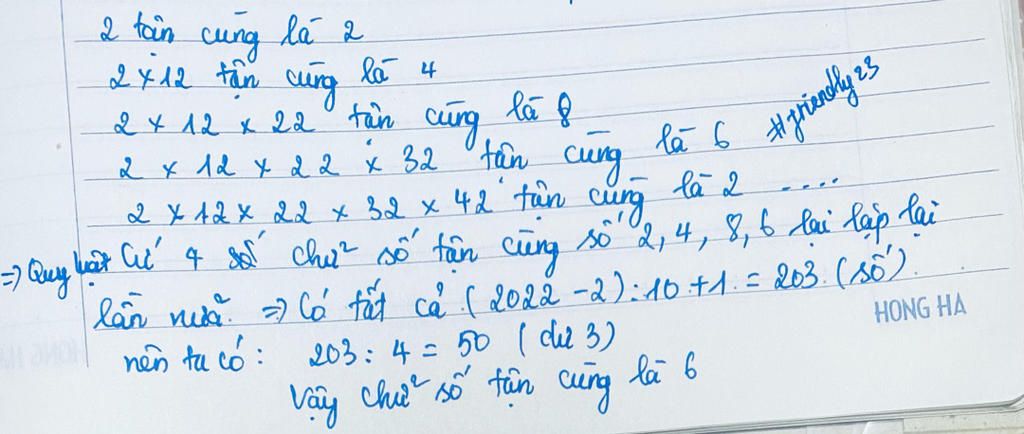 2 tận cùng là 2
2 × 12 tận cùng là 4
2 × 12 × 22 tận cùng là 8
2 × 12 × 22 × 32 tận cùng là 6 #friendly23
2 × 12 × 22 × 32 × 42 tận cùng là 2 ....
=> Quy luật Cứ 4 số chữ số tận cùng số 2, 4, 8, 6 lại lặp lại
lần nữa. => Có tất cả (2022 - 2) : 10 + 1 = 203 (số).
HONG HA
nên ta có: 203 : 4 = 50 (dư 3)
Vậy chữ số tận cùng là 6